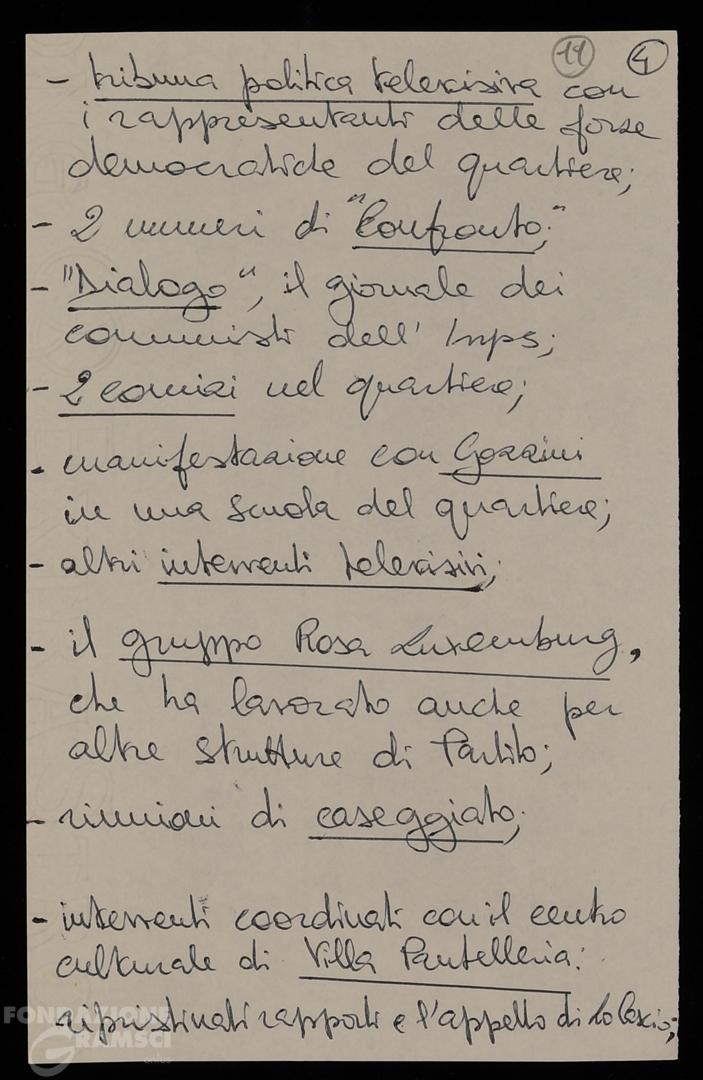 11 4
- tribuna politica televisiva con
i rappresentanti delle forze
democratiche del quartiere;
- 2 numeri di "Confronto;"
- "Dialogo", il giornale dei
comunisti dell'Inps;
- 2 comizi nel quartiere;
- manifestazione con Gozzini
in una scuola del quartiere;
- altri interventi televisivi;
- il gruppo Rosa Luxemburg,
che ha lavorato anche per
altre strutture di Partito;
- riunioni di caseggiato;
- interventi coordinati con il centro
culturale di Villa Pantelleria:
ripristinati rapporti e l'appello di Lo Cascio;
FONDAZIONE
GRAMSCI
onlus